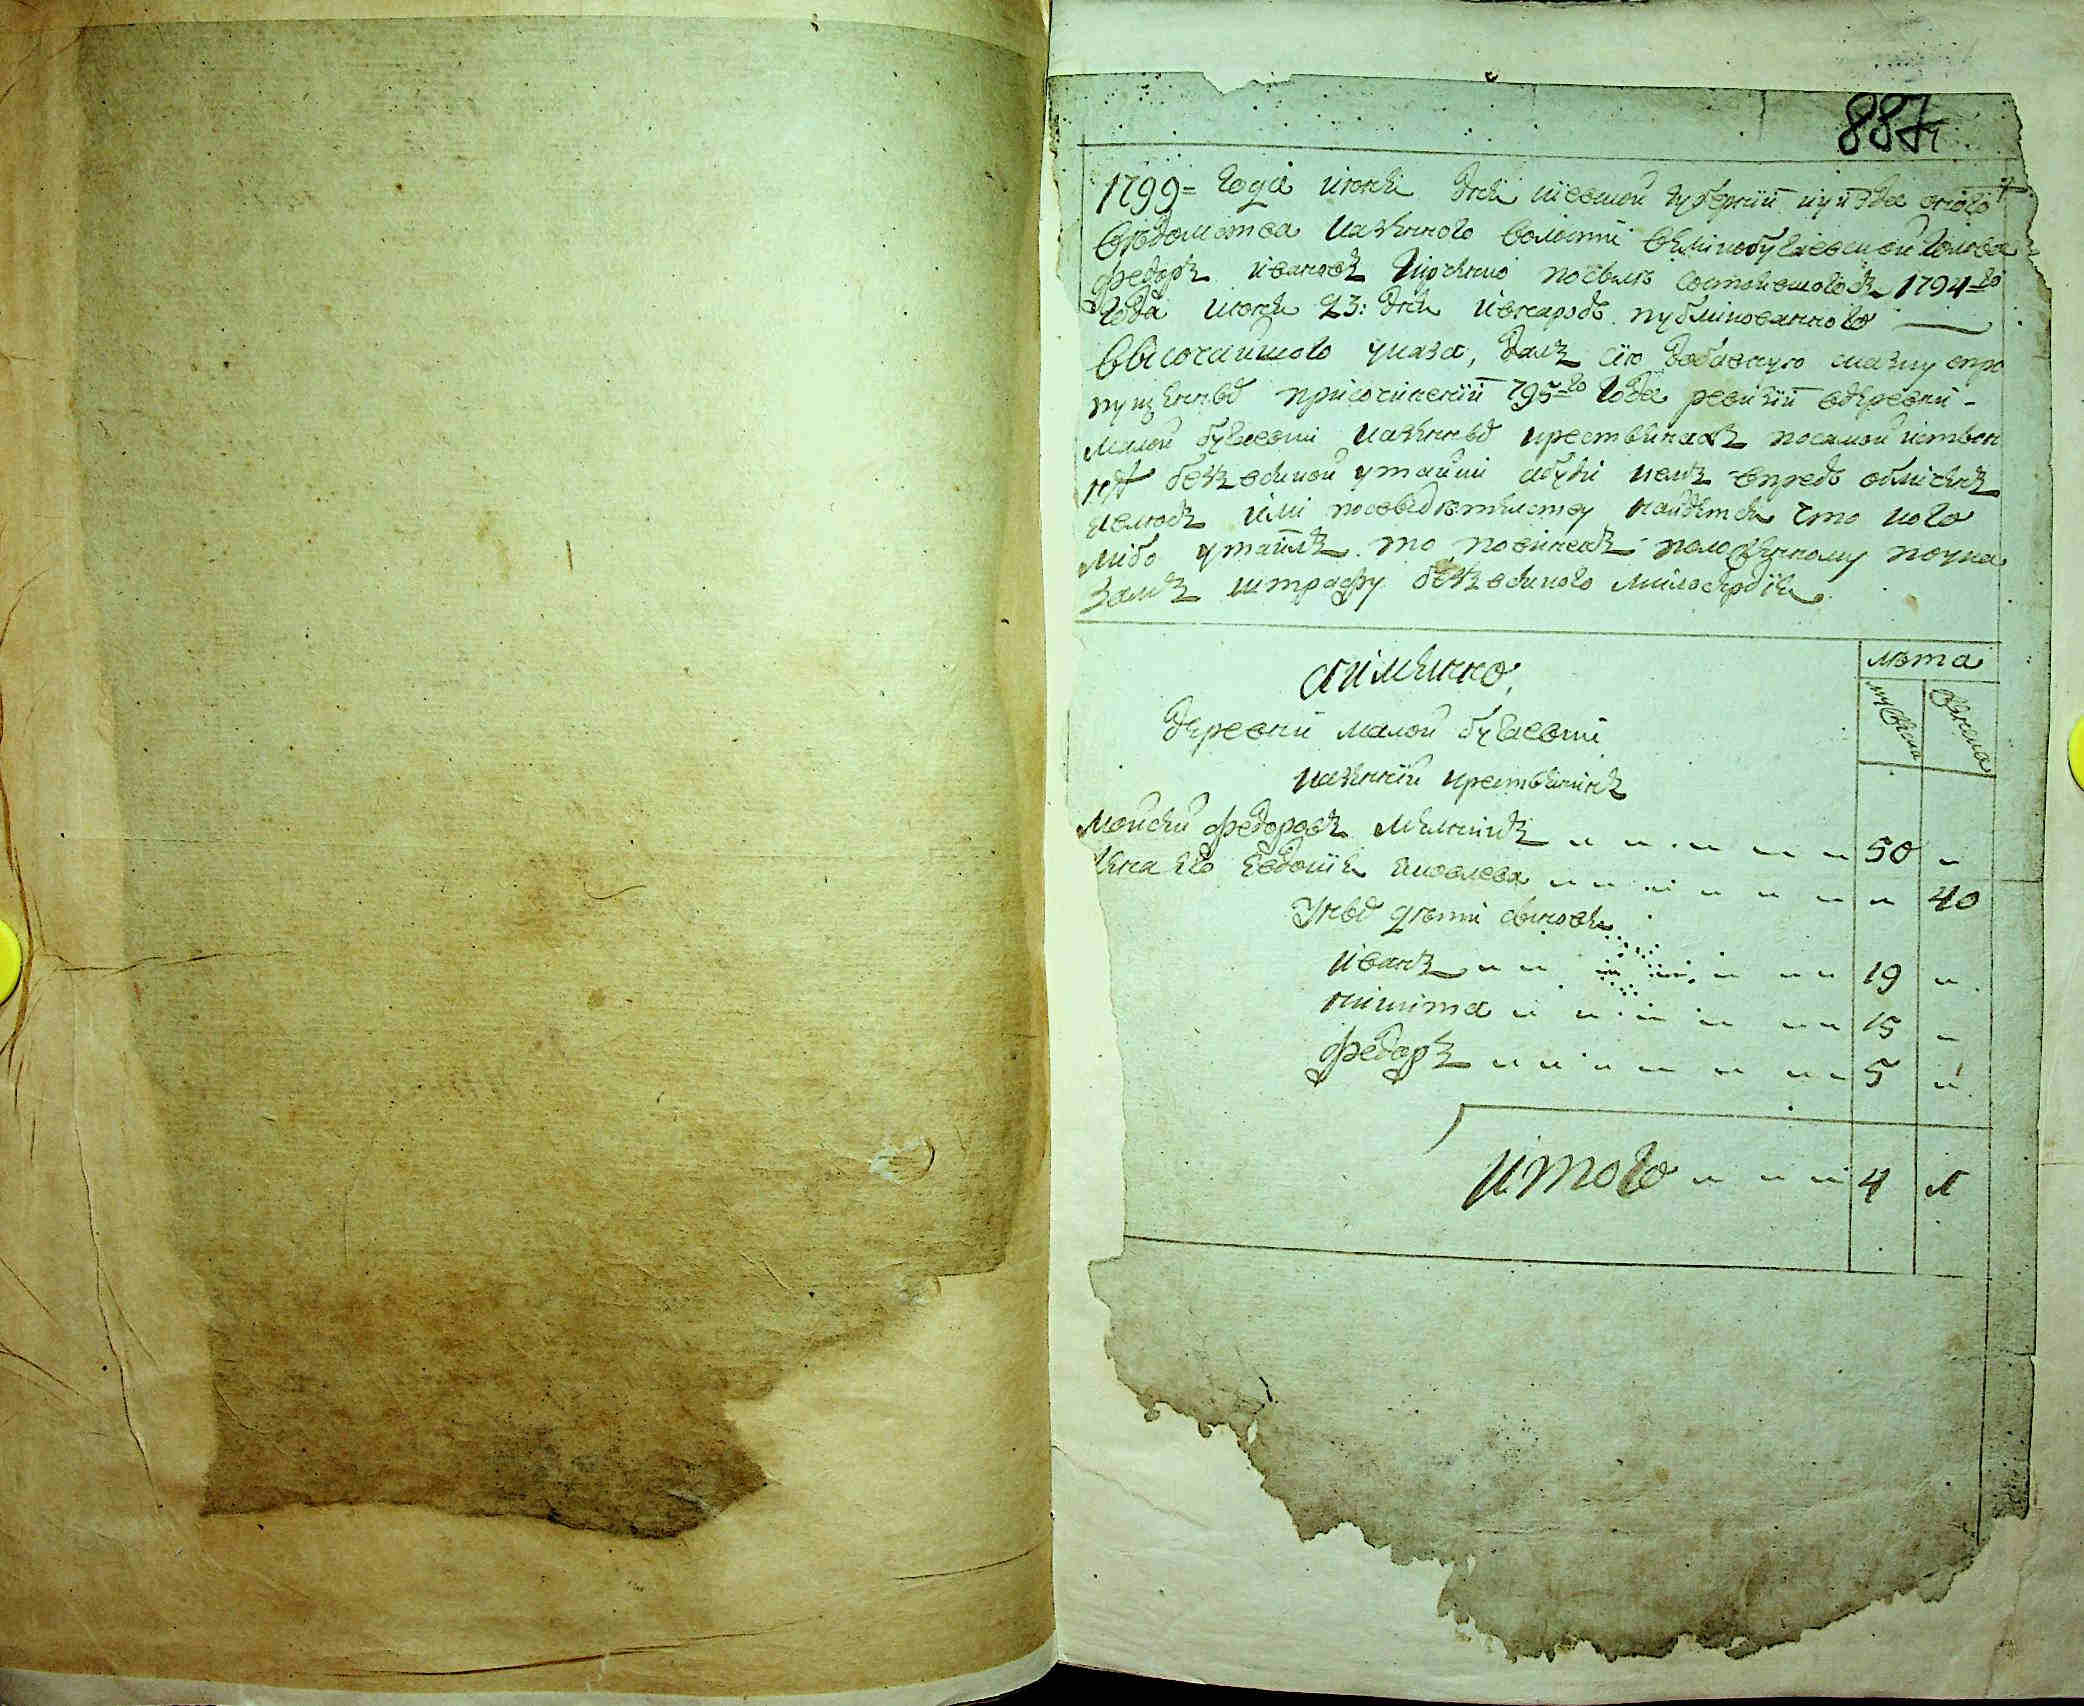 887
1799= года июня дня киевской губернии и уезда оного
ведомства казенного волости великобугаевской голова
федоръ ивановъ по силе состоявшогося 1794=го
года июня 23: дня и внародъ публикованного
высочайшого указа, далъ сию добавную сказку о про
пущенныхъ при сочинении 795=го года ревизии в деревни
малой бугаевки казенныхъ крестьянахъ по самой истен
не безъ всякой утайки а буди кемъ впредь обличенъ
явлюсь или по свидетельству найдется что кого
либо утаилъ то повиненъ положенному по ука
замъ штрафу безъ всякого милосердия
а именно
лѣта
мужеска
женска
деревни малой бугаевки
казенний крестьянинъ
Мойсей федоровъ мелникъ 50 „
жена его евдокия яковлева „ 40
У нихъ дѣти сыновя
иванъ 19 „
никита 15 „
федоръ 5 „
итого 4 1